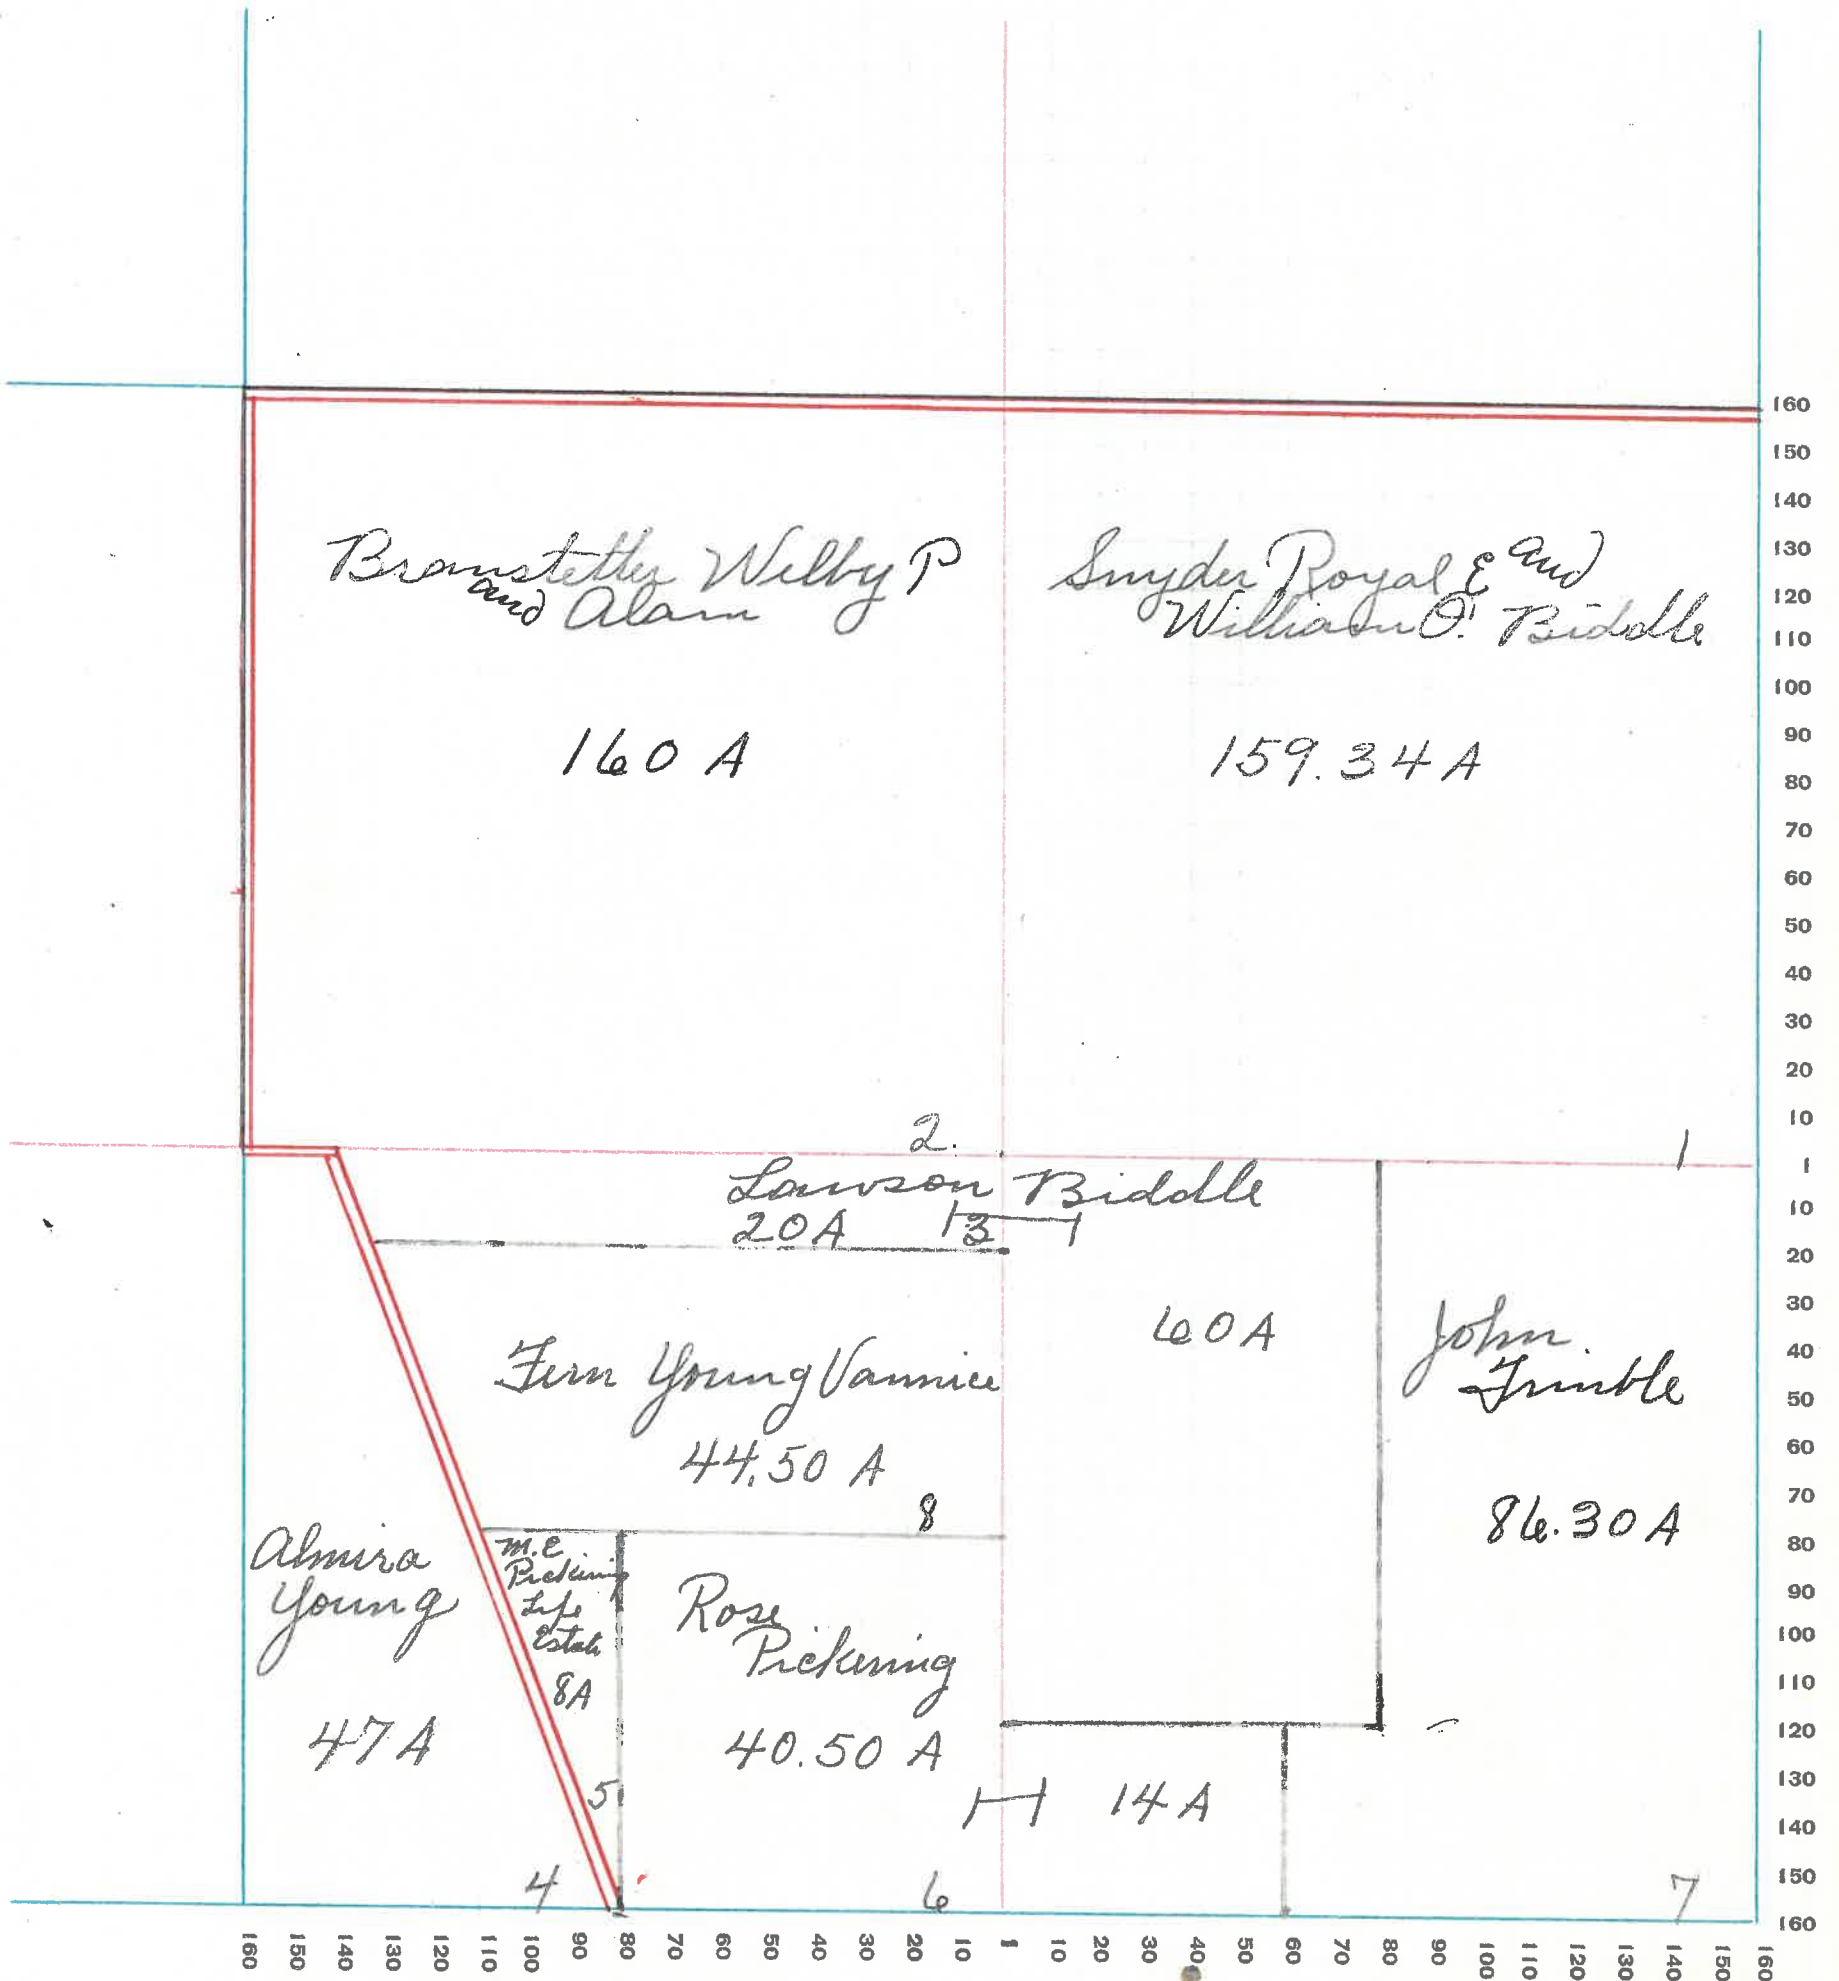 Branstetter Wilby P
and Alam
160 A
2.
Snyder Royal E and
William O. Biddle
159.34 A
1
Lawson Biddle
20 A
3
60 A
Fern Young Vannice
44.50 A
8
John
Trimble
86.30 A
7
Almira
Young
47 A
4
M.E
Pickering
Life
Estate
8A
5
Rose
Pickering
40.50 A
6
14 A
160
150
140
130
120
110
100
90
80
70
60
50
40
30
20
10
1
10
20
30
40
50
60
70
80
90
100
110
120
130
140
150
160
160 150 140 130 120 110 100 90 80 70 60 50 40 30 20 10 1 10 20 30 40 50 60 70 80 90 100 110 120 130 140 150 160